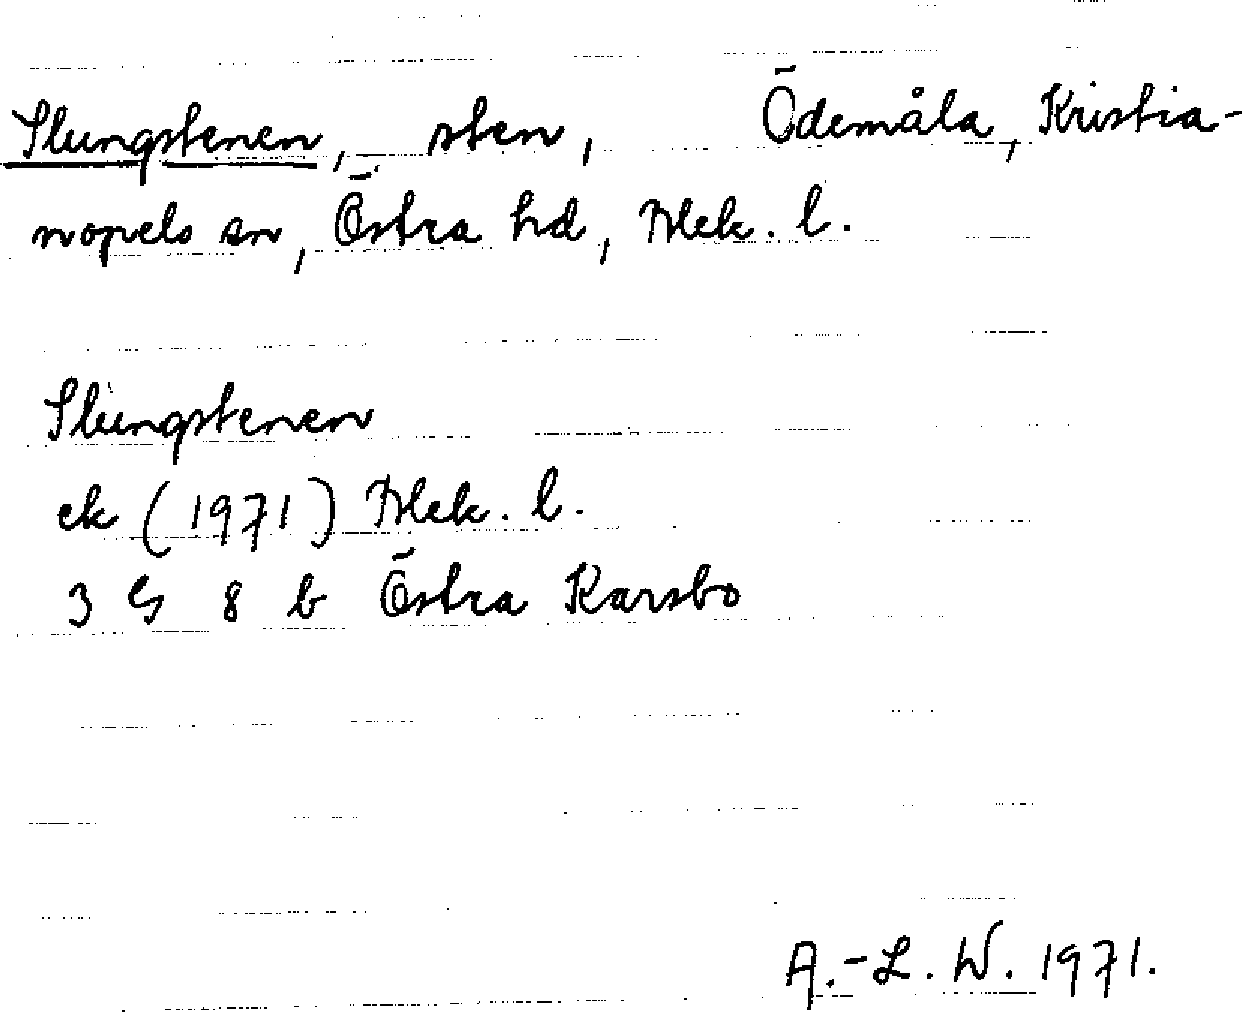 Slungstenen, sten, Ödemåla, Kristia-
nopels sn, Östra hd, Blek. l.
Slungstenen
ek (1971) Blek. l.
3 G 8 b Östra Karsbo
A.-L. W. 1971.